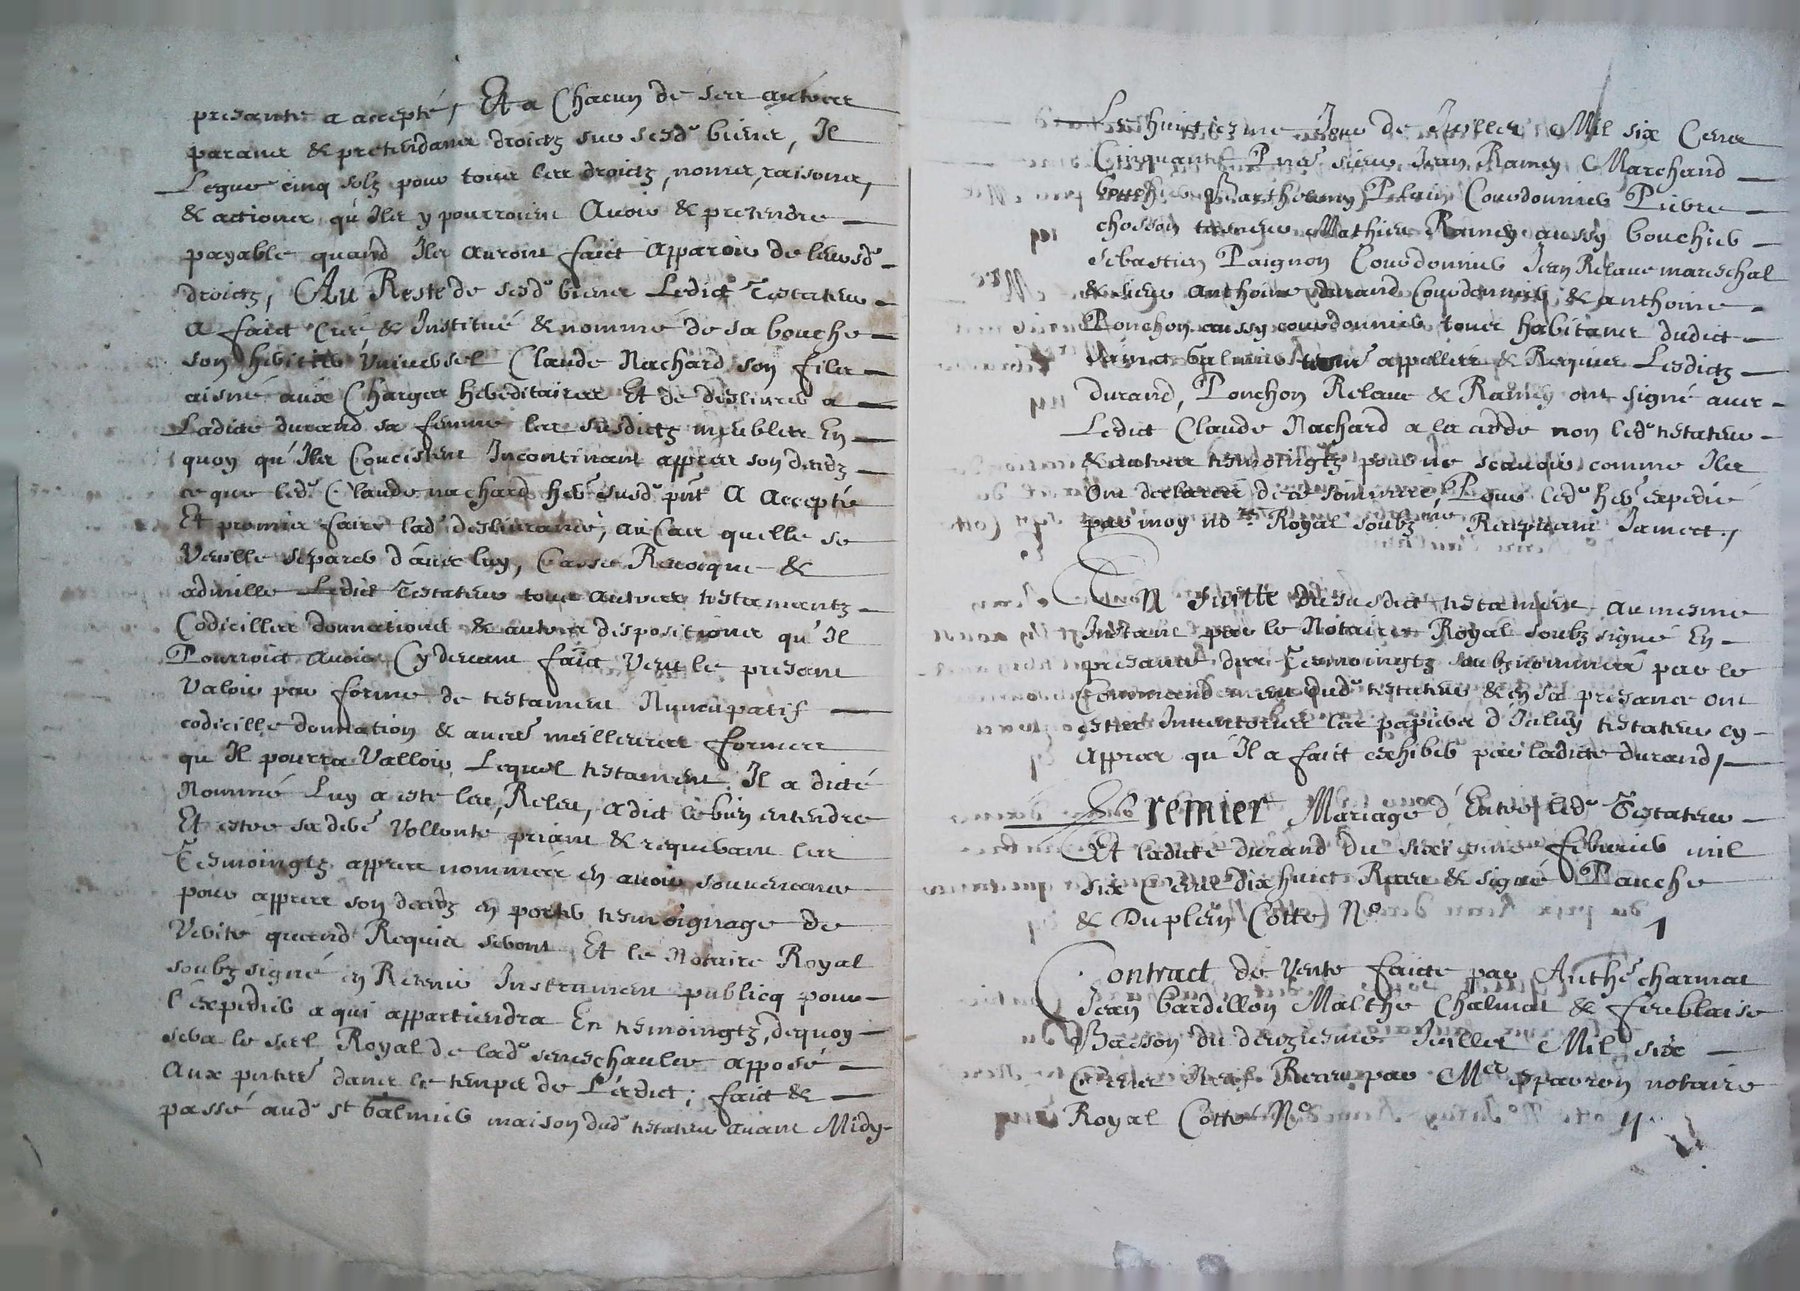 presante a accepté, Et a Chacun de ses autres
parans & pretendans droictz sur sesd. biens, Il
Legue cinq solz pour tous les droictz, noms, raisons,
& actions qu'Ilz y pourroient Avoir & pretendre
payable quand Ilz auront faict Apparoir de leursd.
droictz, Au Reste de sesd. biens Ledict Testateur
A faict Creé & Institué & nommé de sa bouche
son heritier Universel Claude Nachard son filz
aisné aux Charges hereditaires Et de deslivrer a
Ladicte durand sa femme les susdictz meubles En
quoy qu'Ilz Concistent Incontinant appres son decedz
ce que led. Claude nachard her. susd. pnt A Accepté
Et promis faire lad. deslivrance, au Cas quelle se
Veuille separer d'avec luy, Casse Revocque &
adnulle Ledict Testateur tous autres testamantz
Codicilles donnations & autres dispositions qu'Il
Pourroict avoir Cy devant faict Veut le presant
Valoir par forme de testament Nuncupatif
codicille donnation & autres meilleures formes
qu'Il pourra Valloir Lequel testament Il a dicté
Nommé Luy a esté leu, Releu, a dict le bien entendre
Et estre sa der.e Vollonté priant & requerant les
Tesmoingtz appres nommés en avoir souvenance
pour appres son decedz en porter tesmoignage de
Verité quand Requis seront Et le Notaire Royal
soubzsigné en Retenir Instrument publicq pour
l'expedier a qui appartiendra En tesmoingtz dequoy
sera le scel Royal de lad. seneschaulcé apposé
Aux pntes dans le temps de L'edict; faict &
passé aud. st Galmier maison dud. testateur avant Midy
Le huictiezme Jour de Juillet Mil six Cens
Cinquante Pns sieur Jean Ramey Marchand
bouchier Barthelemy Plain Courdonnier Pierre
chosson Mathieu Ramey aussy bouchier
sebastien Paignon Courdonnier Jean Relave mareschal
& sieur anthoine durand Courdonnier & anthoine
Ponchon aussy courdonnier tous habitans dudict
sainct Galmier appellés & Requis Lesdictz
durand, Ponchon Relave & Ramey ont signé avec
Ledict Claude Nachard a la cedde non led. testateur
& autres tesmoingtz pour ne scavoir comme Ilz
ont declaré de ce sommés, Pour led. her. expedié
par moy no.re Royal soubz.né Requerant Jamect,
En suitte du susdict testament au mesme
Instant par le Notaire Royal soubzsigné En
presance des Tesmoingtz soubznommés par le
Commandement dud. testateur & en sa presance ont
estes Inventorier les papiers d'Iceluy testateur en
Appres qu'Il a faict exhiber par ladicte durand,
Premier Mariage d'Entre led. Testateur
Et ladicte durand du febvrier mil
six Cens dix huict Receu & signé Panche
& Duplein Cotte No 1
Contract de Vente faicte par Anthe charmat
Jean bardillon Malthe Chalmat &
Basson du deuziesme Juillet Mil six
Cens Neuf Receu par Me Espavron notaire
Royal Cotté No 11